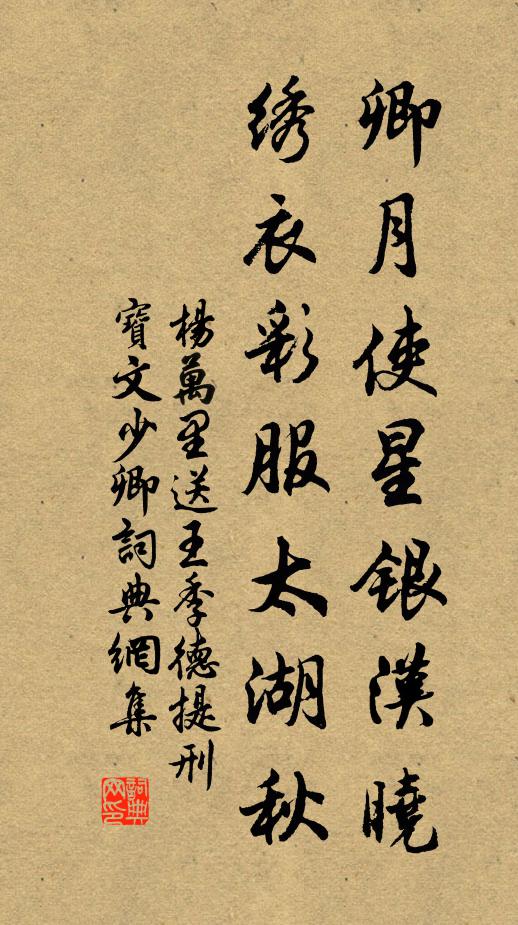 卿月使星銀漢曉
绣衣彩服太湖秋
楊萬里送王季德提刑
寶文少卿詞典網集
詞典
网印